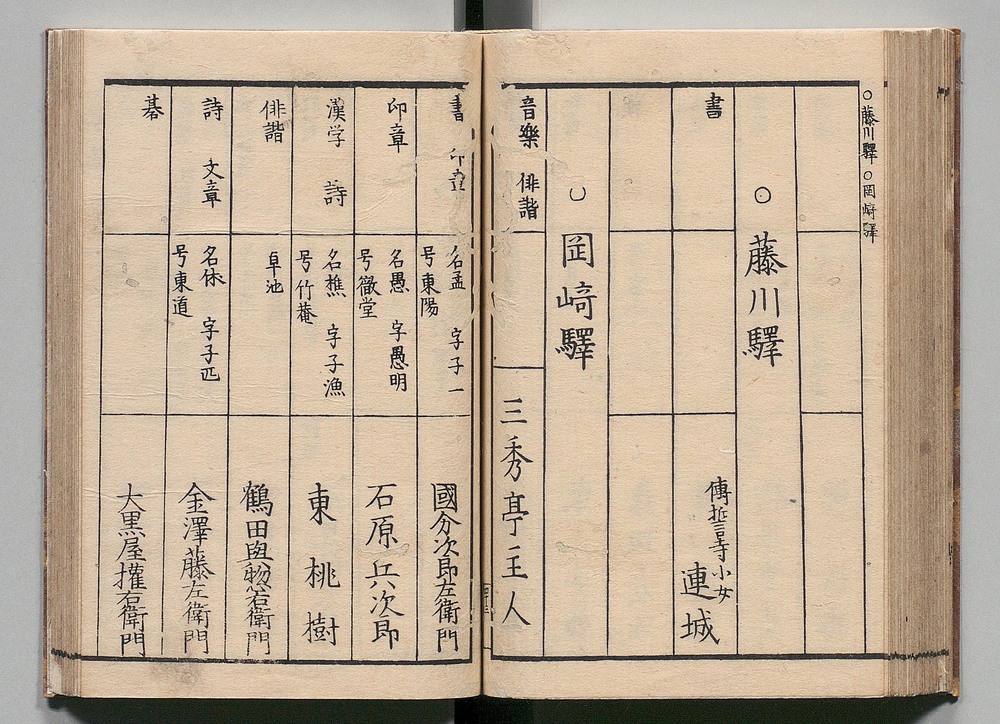 ○藤川驛○岡崎驛
○藤川驛
書
傳誓寺小女
連城
○岡﨑驛
音樂 俳諧
三秀亭主人
書 印章
名孟 字子一
号東陽
國分次郎左衛門
印章
名愚 字愚明
号徹堂
石原兵次郎
漢学 詩
名樵 字子漁
号竹菴
東桃樹
俳諧
卓池
鶴田與惣右衛門
詩 文章
名休 字子匹
号東道
金澤藤左衛門
碁
大黒屋権右衛門